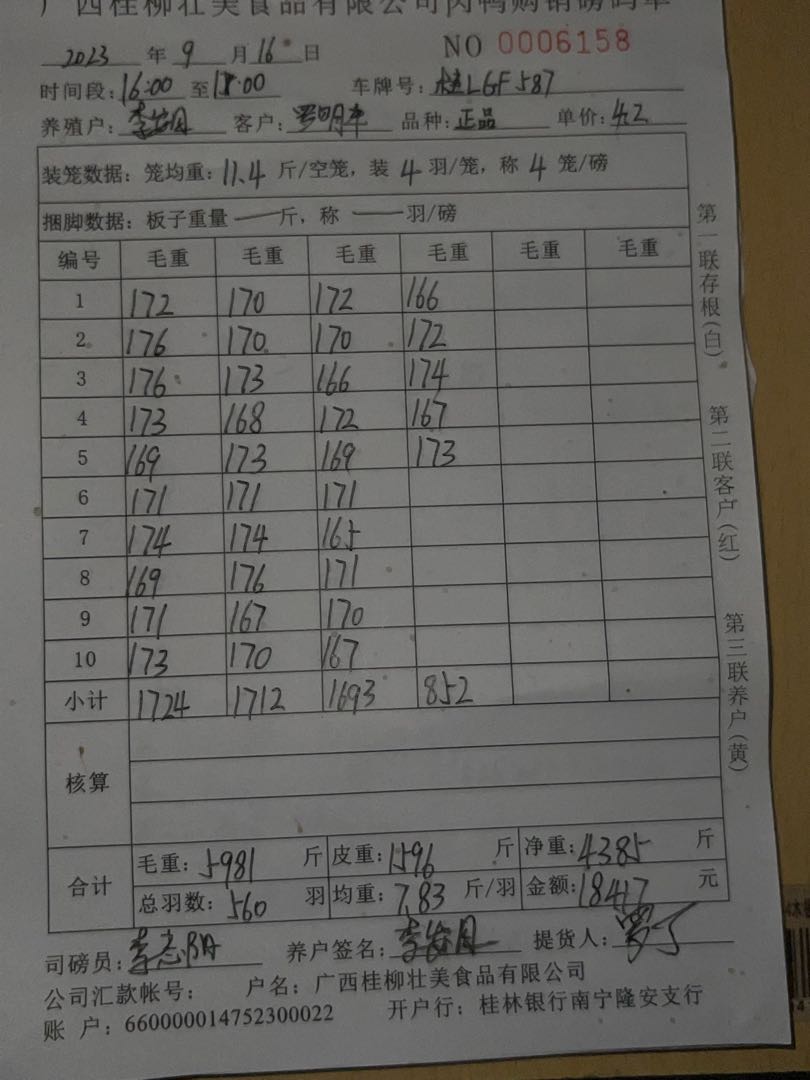 广西桂柳壮美食品有限公司肉鸭购销磅码单
2023 年 9 月 16 日 NO 0006158
时间段: 16:00 至 18:00 车牌号: 桂LGF587
养殖户: 李发月 客户: 罗明丰 品种: 正品 单价: 4.2
装笼数据: 笼均重: 11.4 斤/空笼, 装 4 羽/笼, 称 4 笼/磅
捆脚数据: 板子重量 — 斤, 称 — 羽/磅
编号 毛重 毛重 毛重 毛重 毛重 毛重
1 172 170 172 166
2 176 170 170 172
3 176 173 166 174
4 173 168 172 167
5 169 173 169 173
6 171 171 171
7 174 174 165
8 169 176 171
9 171 167 170
10 173 170 167
小计 1724 1712 1693 852
核算
合计 毛重: 5981 斤 皮重: 1596 斤 净重: 4385 斤
总羽数: 560 羽 均重: 7.83 斤/羽 金额: 18417 元
司磅员: 李志阳 养户签名: 李发月 提货人: 罗
公司汇款帐号: 户名: 广西桂柳壮美食品有限公司
账 户: 660000014752300022 开户行: 桂林银行南宁隆安支行
第一联存根(白)
第二联客户(红)
第三联养户(黄)